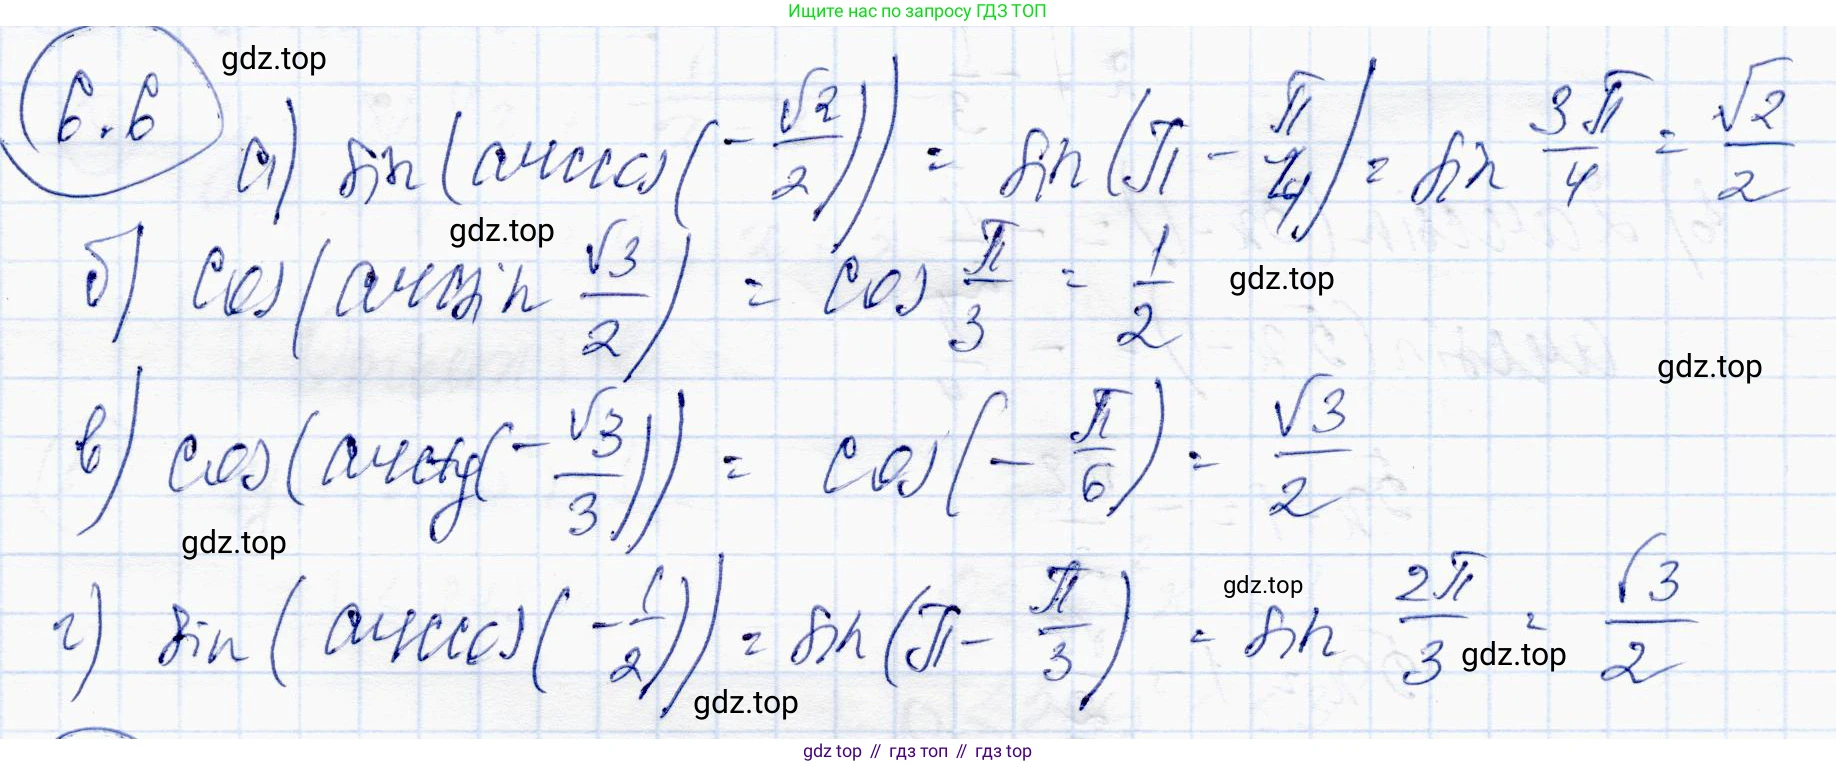 Ищите нас по запросу ГДЗ ТОП
6.6 gdz.top
а) sin(arccos(-√2/2)) = sin(π - π/4) = sin 3π/4 = √2/2
gdz.top
б) cos(arcsin √3/2) = cos π/3 = 1/2 gdz.top
gdz.top
в) cos(arctg(-√3/3)) = cos(-π/6) = √3/2
gdz.top
г) sin(arccos(-1/2)) = sin(π - π/3) = sin 2π/3 = √3/2
gdz.top
gdz.top
gdz.top
gdz top // гдз топ // гдз top